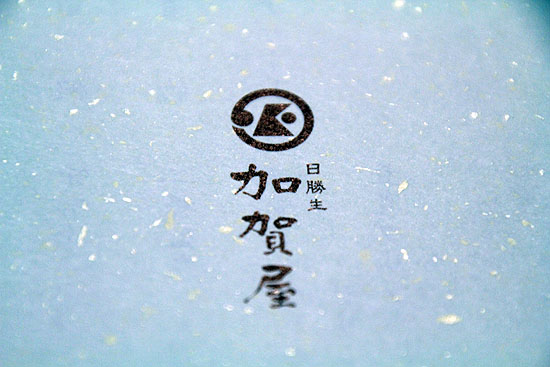 日勝生
加賀屋